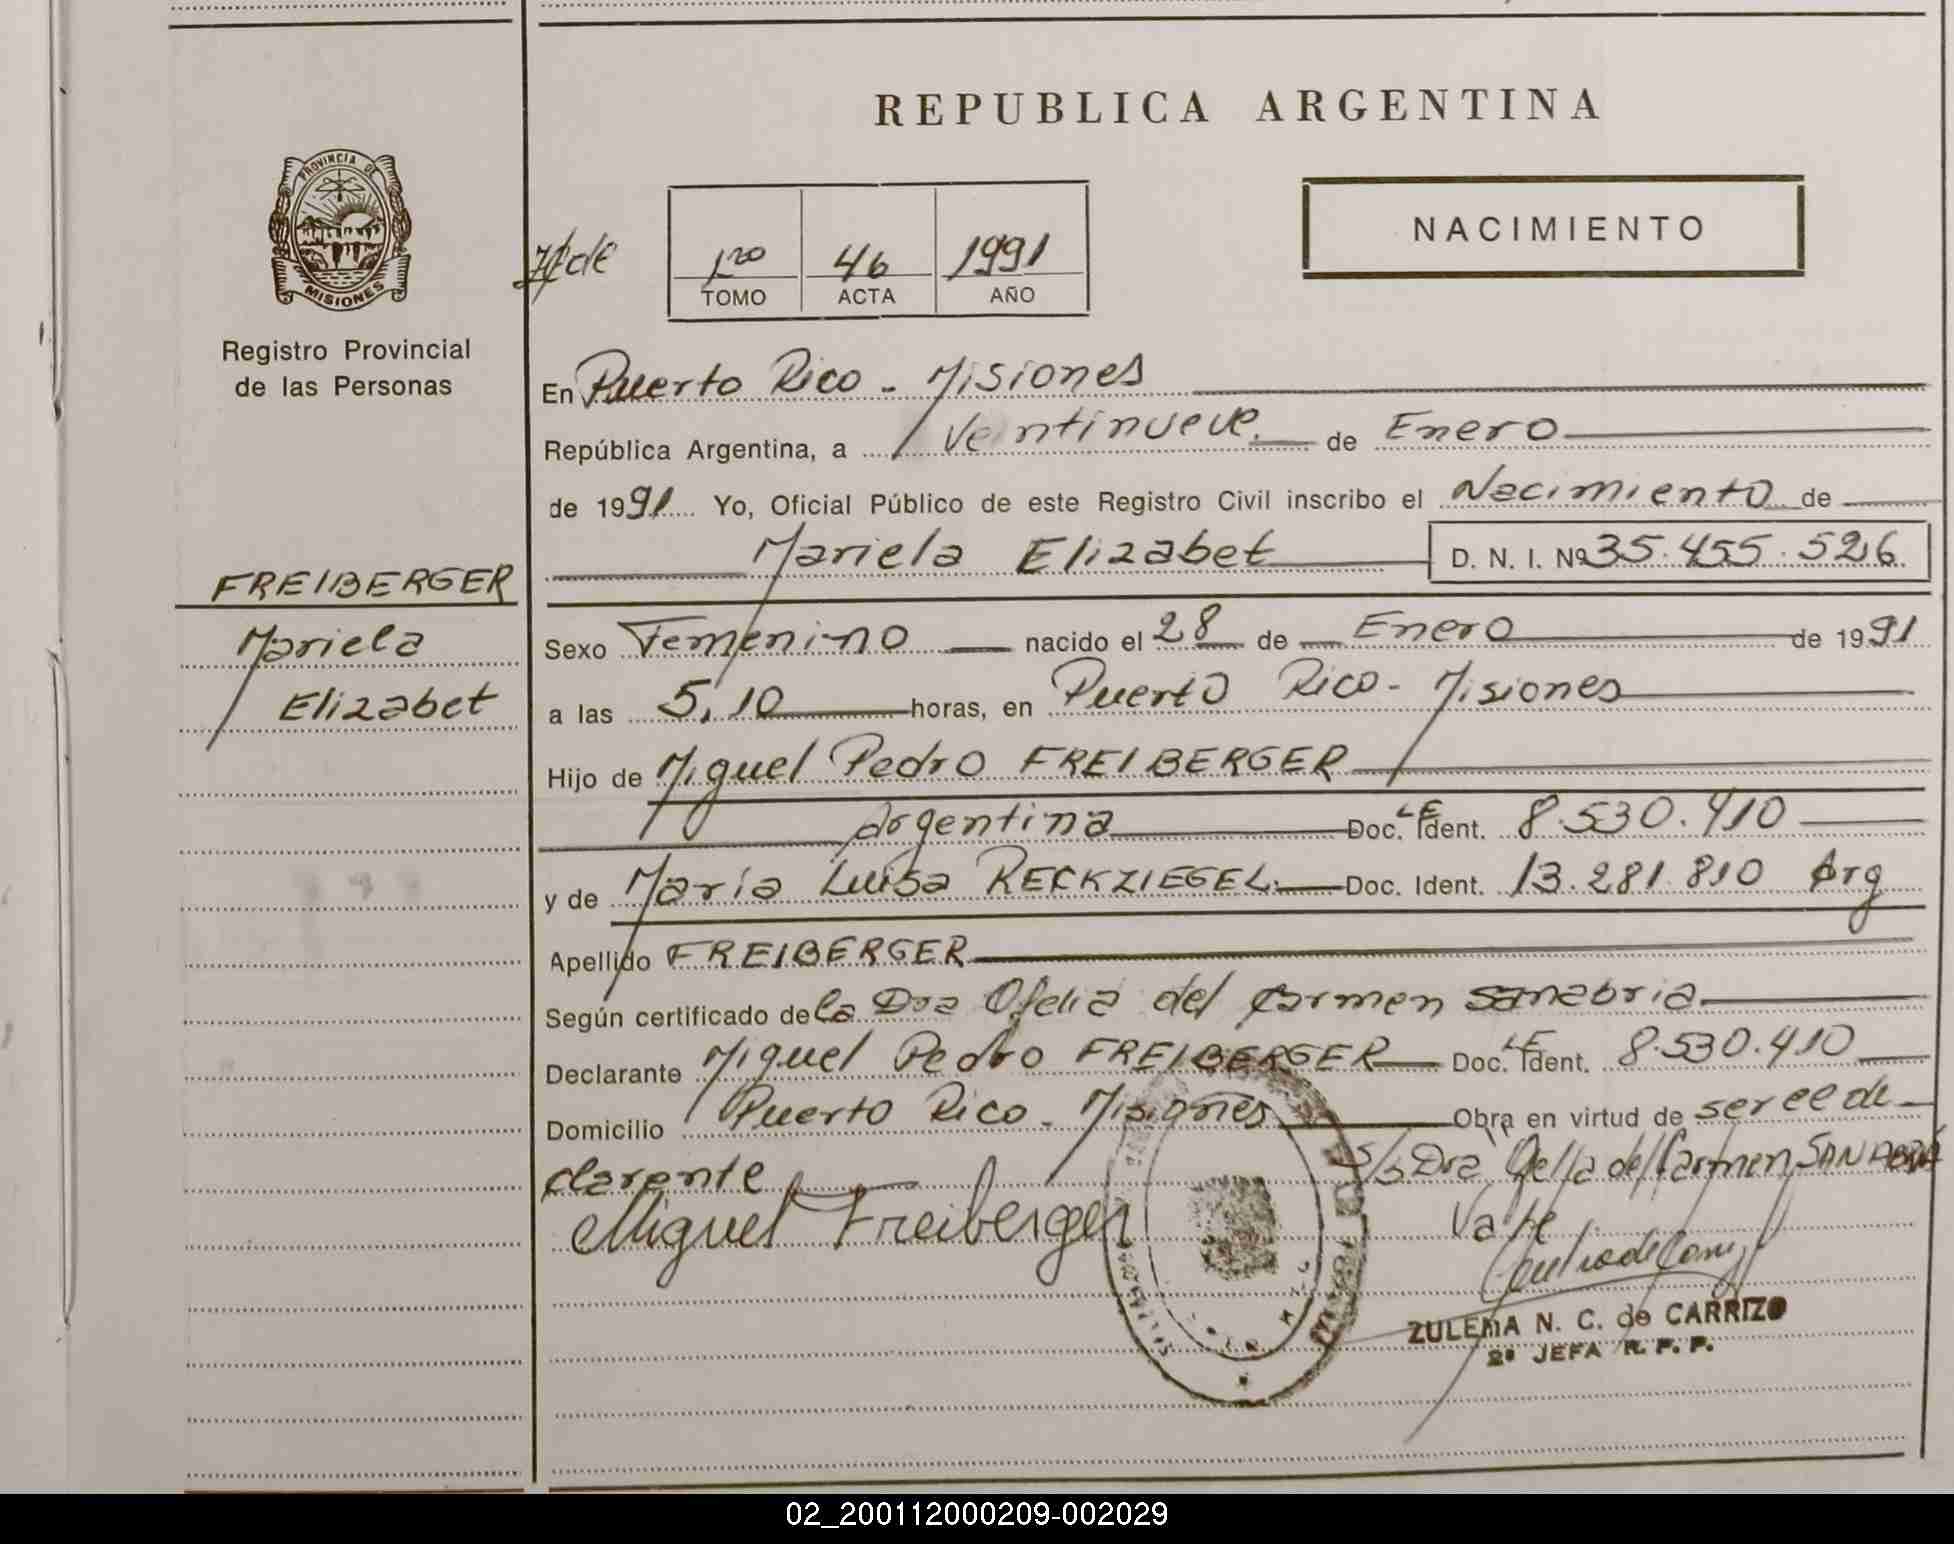 REPUBLICA ARGENTINA
PROVINCIA DE
MISIONES
Registro Provincial
de las Personas
1ro 46 1991
TOMO ACTA AÑO
NACIMIENTO
En Puerto Rico - Misiones
República Argentina, a Veintinueve de Enero
de 1991 Yo, Oficial Público de este Registro Civil inscribo el Nacimiento de
Mariela Elizabet D. N. I. Nº 35.455.526
FREIBERGER
Mariela
Elizabet
Sexo Femenino nacido el 28 de Enero de 1991
a las 5,10 horas, en Puerto Rico - Misiones
Hijo de Miguel Pedro FREIBERGER
argentina Doc. Ident. LE 8.530.410
y de María Luisa RECKZIEGEL Doc. Ident. 13.281.810 Arg
Apellido FREIBERGER
Según certificado de la Dra Ofelia del Carmen Sanabria
Declarante Miguel Pedro FREIBERGER Doc. Ident. LE 8.530.410
Domicilio Puerto Rico - Misiones Obra en virtud de ser el de
clarante S/s Dra Ofelia del Carmen SANABRIA
Miguel Freiberger Vale
ZULEMA N. C. de CARRIZO
2ª JEFA R. P. P.
02_200112000209-002029